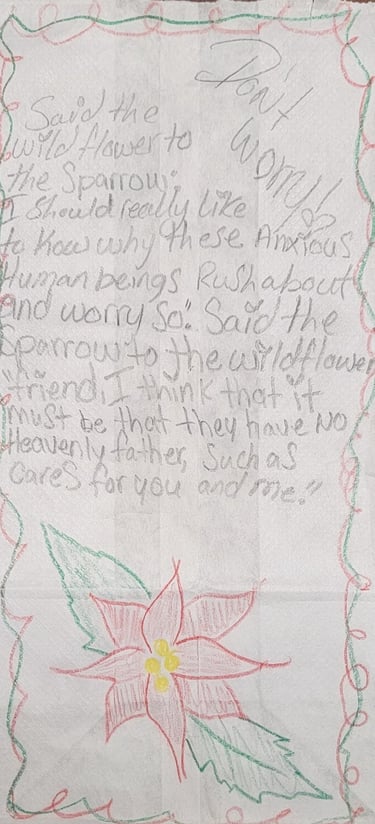 Don't
Worry!!
Said the
wild flower to
the Sparrow;
"I should really like
to Kow why these Anxious
Human beings Rush about
and worry so." Said the
Sparrow to the wildflower
"friend, I think that it
must be that they have No
Heavenly father, Such as
Cares for you and me."